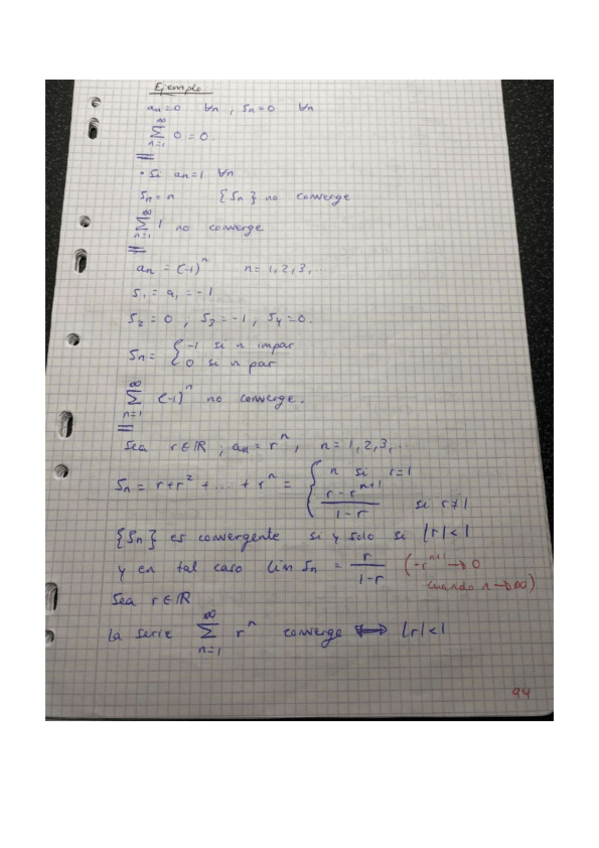 Ejemplo
an=0 ∀n , Sn=0 ∀n
∑_{n=1}^{∞} 0 = 0.
• Si an=1 ∀n
Sn=n {Sn} no converge
∑_{n=1}^{∞} 1 no converge
an = (-1)^n n=1,2,3,...
S1 = a1 = -1
S2 = 0 ; S3 = -1 , S4 = 0.
Sn = { -1 si n impar
0 si n par
∑_{n=1}^{∞} (-1)^n no converge.
Sea r∈ℝ , an = r^n , n=1,2,3,...
Sn = r+r^2 + ... + r^n = { n si r=1
(r - r^{n+1})/(1-r) si r≠1
{Sn} es convergente si y solo si |r|<1
y en tal caso lim Sn = r/(1-r) (-r^{n+1} → 0
cuando n→∞)
Sea r∈ℝ
La serie ∑_{n=1}^{∞} r^n converge ⟺ |r|<1
94